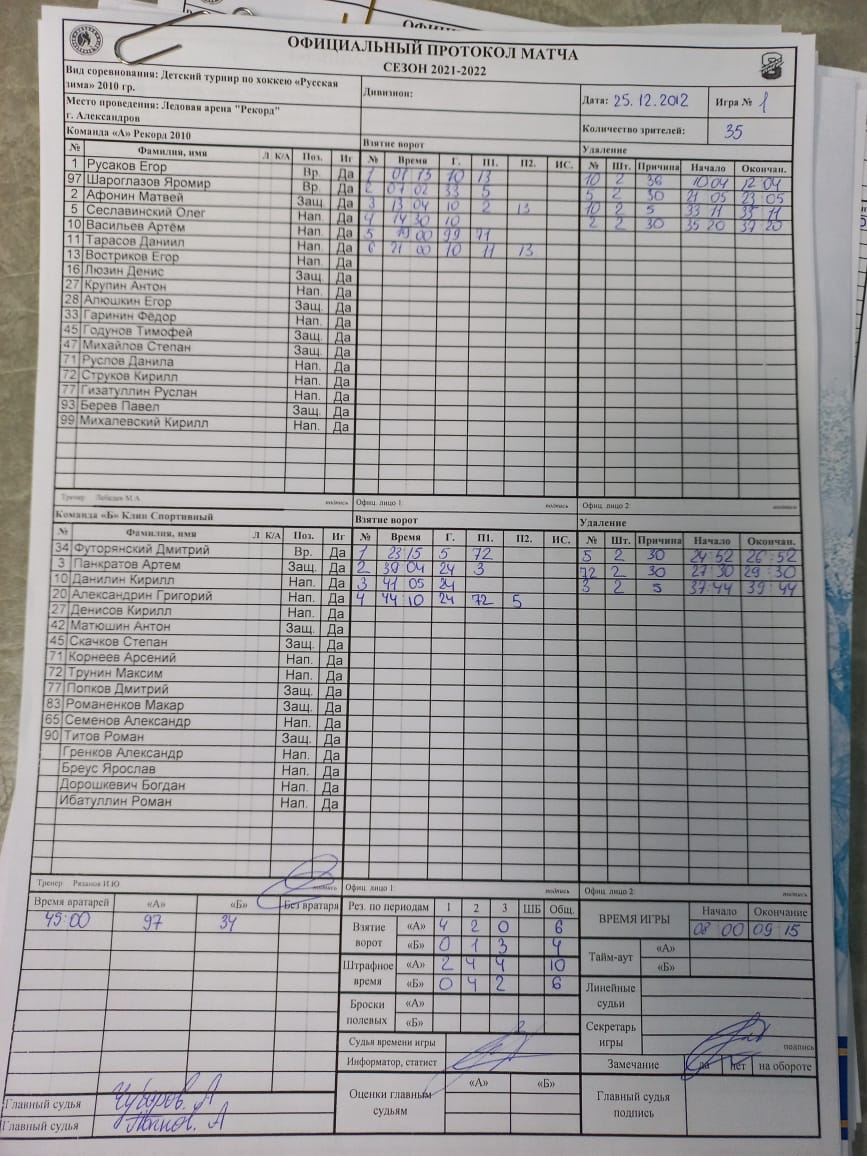 ОФИЦИАЛЬНЫЙ ПРОТОКОЛ МАТЧА
СЕЗОН 2021-2022
Вид соревнования: Детский турнир по хоккею «Русская зима» 2010 гр.
Дивизион:
Дата: 25.12.2012 Игра № 1
Место проведения: Ледовая арена "Рекорд" г. Александров
Количество зрителей: 35
Команда «А» Рекорд 2010 Взятие ворот Удаление
№ Фамилия, имя Л К/А Поз. Иг № Время Г. П1. П2. ИС. № Шт. Причина Начало Окончан.
1 Русаков Егор Вр. Да 1 01 13 10 13 10 2 36 10 04 12 04
97 Шароглазов Яромир Вр. Да 2 07 02 33 5 5 2 30 21 05 23 05
2 Афонин Матвей Защ. Да 3 13 04 10 2 13 10 2 5 33 11 35 11
5 Сеславинский Олег Нап. Да 4 14 30 10 2 2 30 35 20 37 20
10 Васильев Артём Нап. Да 5 19 00 99 71
11 Тарасов Даниил Нап. Да 6 21 00 10 11 13
13 Востриков Егор Нап. Да
16 Люзин Денис Защ. Да
27 Крупин Антон Нап. Да
28 Алюшкин Егор Защ. Да
33 Гаринин Фёдор Нап. Да
45 Годунов Тимофей Защ. Да
47 Михайлов Степан Защ. Да
71 Руслов Данила Нап. Да
72 Струков Кирилл Нап. Да
77 Гизатуллин Руслан Нап. Да
93 Берев Павел Защ. Да
99 Михалевский Кирилл Нап. Да
Тренер Лебедев М.А. подпись Офиц. лицо 1 подпись Офиц. лицо 2
Команда «Б» Клин Спортивный Взятие ворот Удаление
№ Фамилия, имя Л К/А Поз. Иг № Время Г. П1. П2. ИС. № Шт. Причина Начало Окончан.
34 Футорянский Дмитрий Вр. Да 1 23 15 5 72 5 2 30 24 52 26 52
3 Панкратов Артем Защ. Да 2 39 04 24 3 72 2 30 27 30 29 30
10 Данилин Кирилл Нап. Да 3 41 05 24 3 2 5 37:44 39 44
20 Александрин Григорий Нап. Да 4 44 10 24 72 5
27 Денисов Кирилл Нап. Да
42 Матюшин Антон Защ. Да
45 Скачков Степан Защ. Да
71 Корнеев Арсений Нап. Да
72 Трунин Максим Нап. Да
77 Попков Дмитрий Защ. Да
83 Романенков Макар Защ. Да
65 Семенов Александр Нап. Да
90 Титов Роман Защ. Да
Гренков Александр Нап. Да
Бреус Ярослав Нап. Да
Дорошкевич Богдан Нап. Да
Ибатуллин Роман Нап. Да
Тренер Рязанов И.Ю подпись Офиц. лицо 1 подпись Офиц. лицо 2 подпись
Время вратарей «А» «Б» Без вратаря
45:00 97 34
Рез. по периодам 1 2 3 ШБ Общ.
Взятие ворот «А» 4 2 0 6
«Б» 0 1 3 4
Штрафное время «А» 2 4 4 10
«Б» 0 4 2 6
Броски полевых «А»
«Б»
Судья времени игры
Информатор, статист
Оценки главным судьям «А» «Б»
ВРЕМЯ ИГРЫ Начало Окончание
08 00 09 15
Тайм-аут «А»
«Б»
Линейные судьи
Секретарь игры подпись
Замечание да нет на обороте
Главный судья подпись
Главный судья Чубаров. А
Главный судья Попков. А